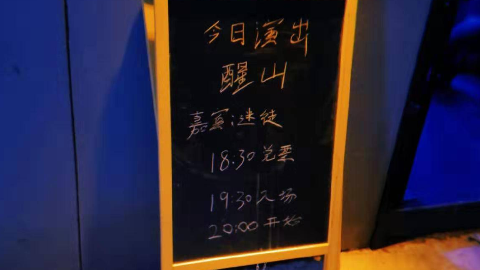 今日演出
醒山
嘉宾 迷徒
18:30 兑票
19:30 入场
20:00 开始